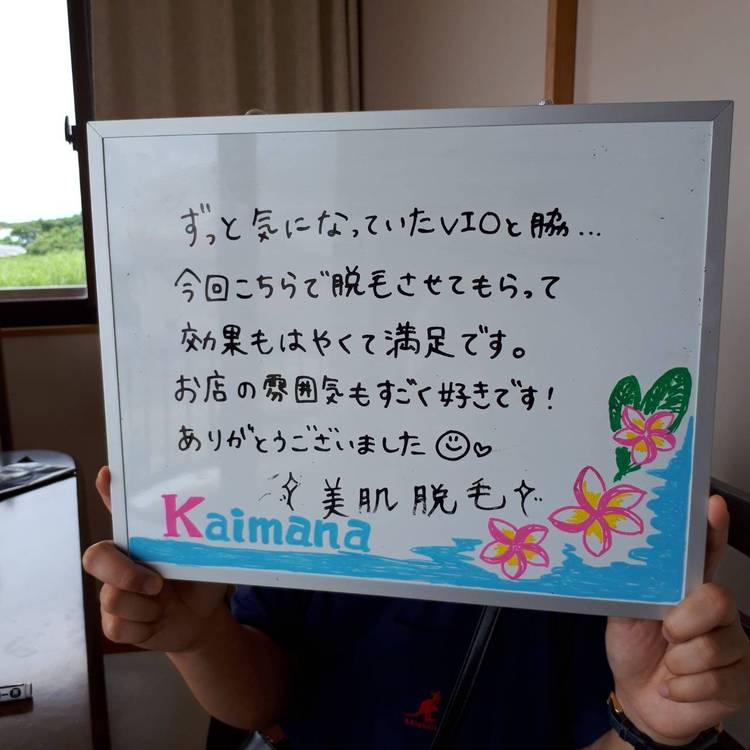 ずっと気になっていたVIOと脇...
今回こちらで脱毛させてもらって
効果もはやくて満足です。
お店の雰囲気もすごく好きです!
ありがとうございました
美肌脱毛
Kaimana